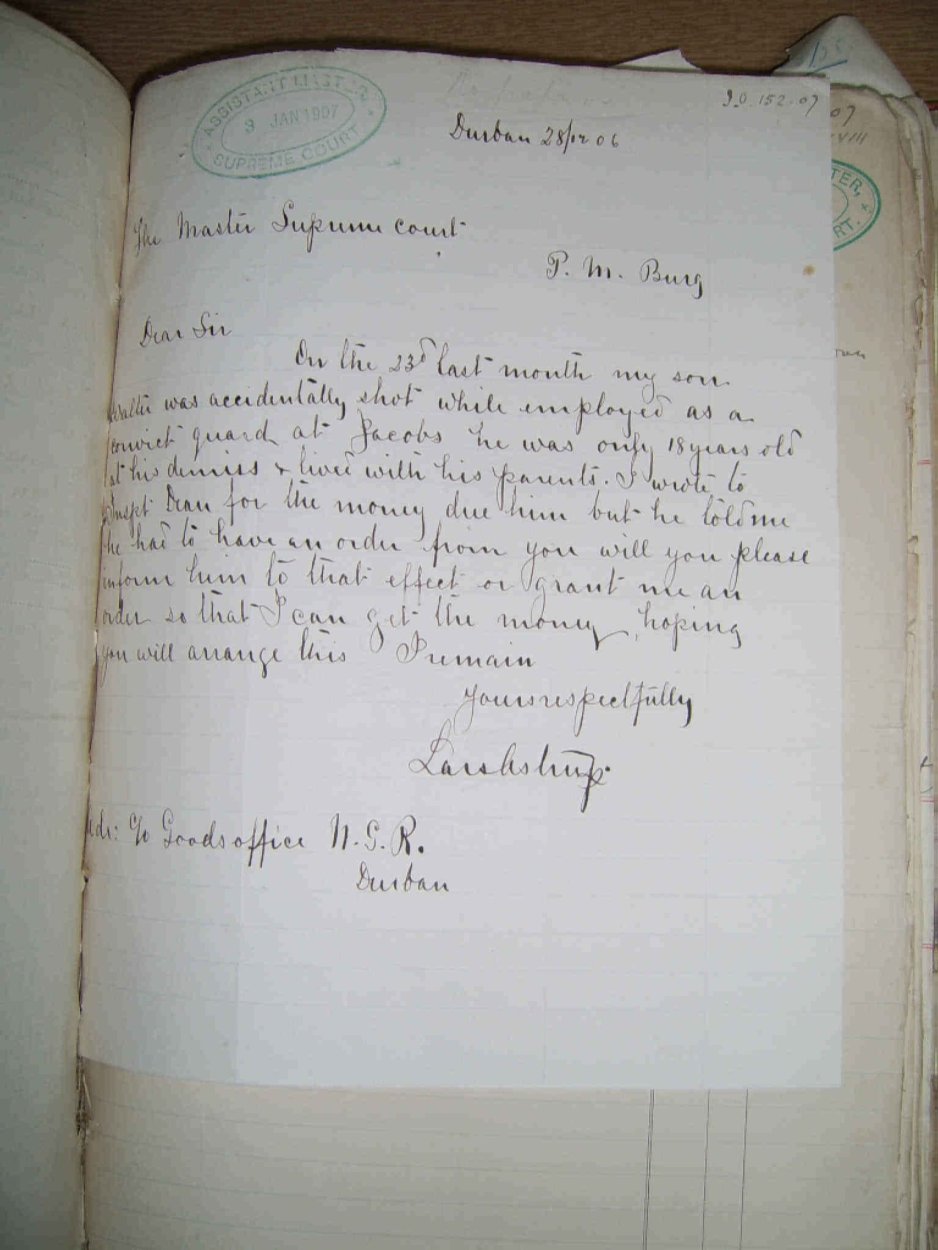 ASSISTANT MASTER
3 JAN 1907
SUPREME COURT
152.07
Durban 28/12 06
The Master Supreme court
P. M. Burg
Dear Sir
On the 23d last month my son
Walter was accidentally shot while employed as a
convict guard at Jacobs he was only 18 years old
at his demiss & lived with his parents. I wrote to
Inspt Dean for the money due him but he told me
he had to have an order from you will you please
inform him to that effect or grant me an
order so that I can get the money, hoping
you will arrange this I remain
Yours respectfully
Adr: c/o Goods office N. G. R.
Durban
07
VIII
TER,
RT.